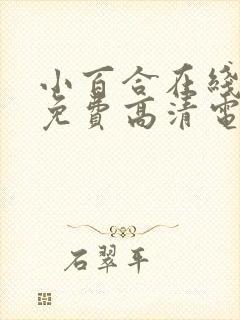 小百合在綫
免費高清電
石翠平